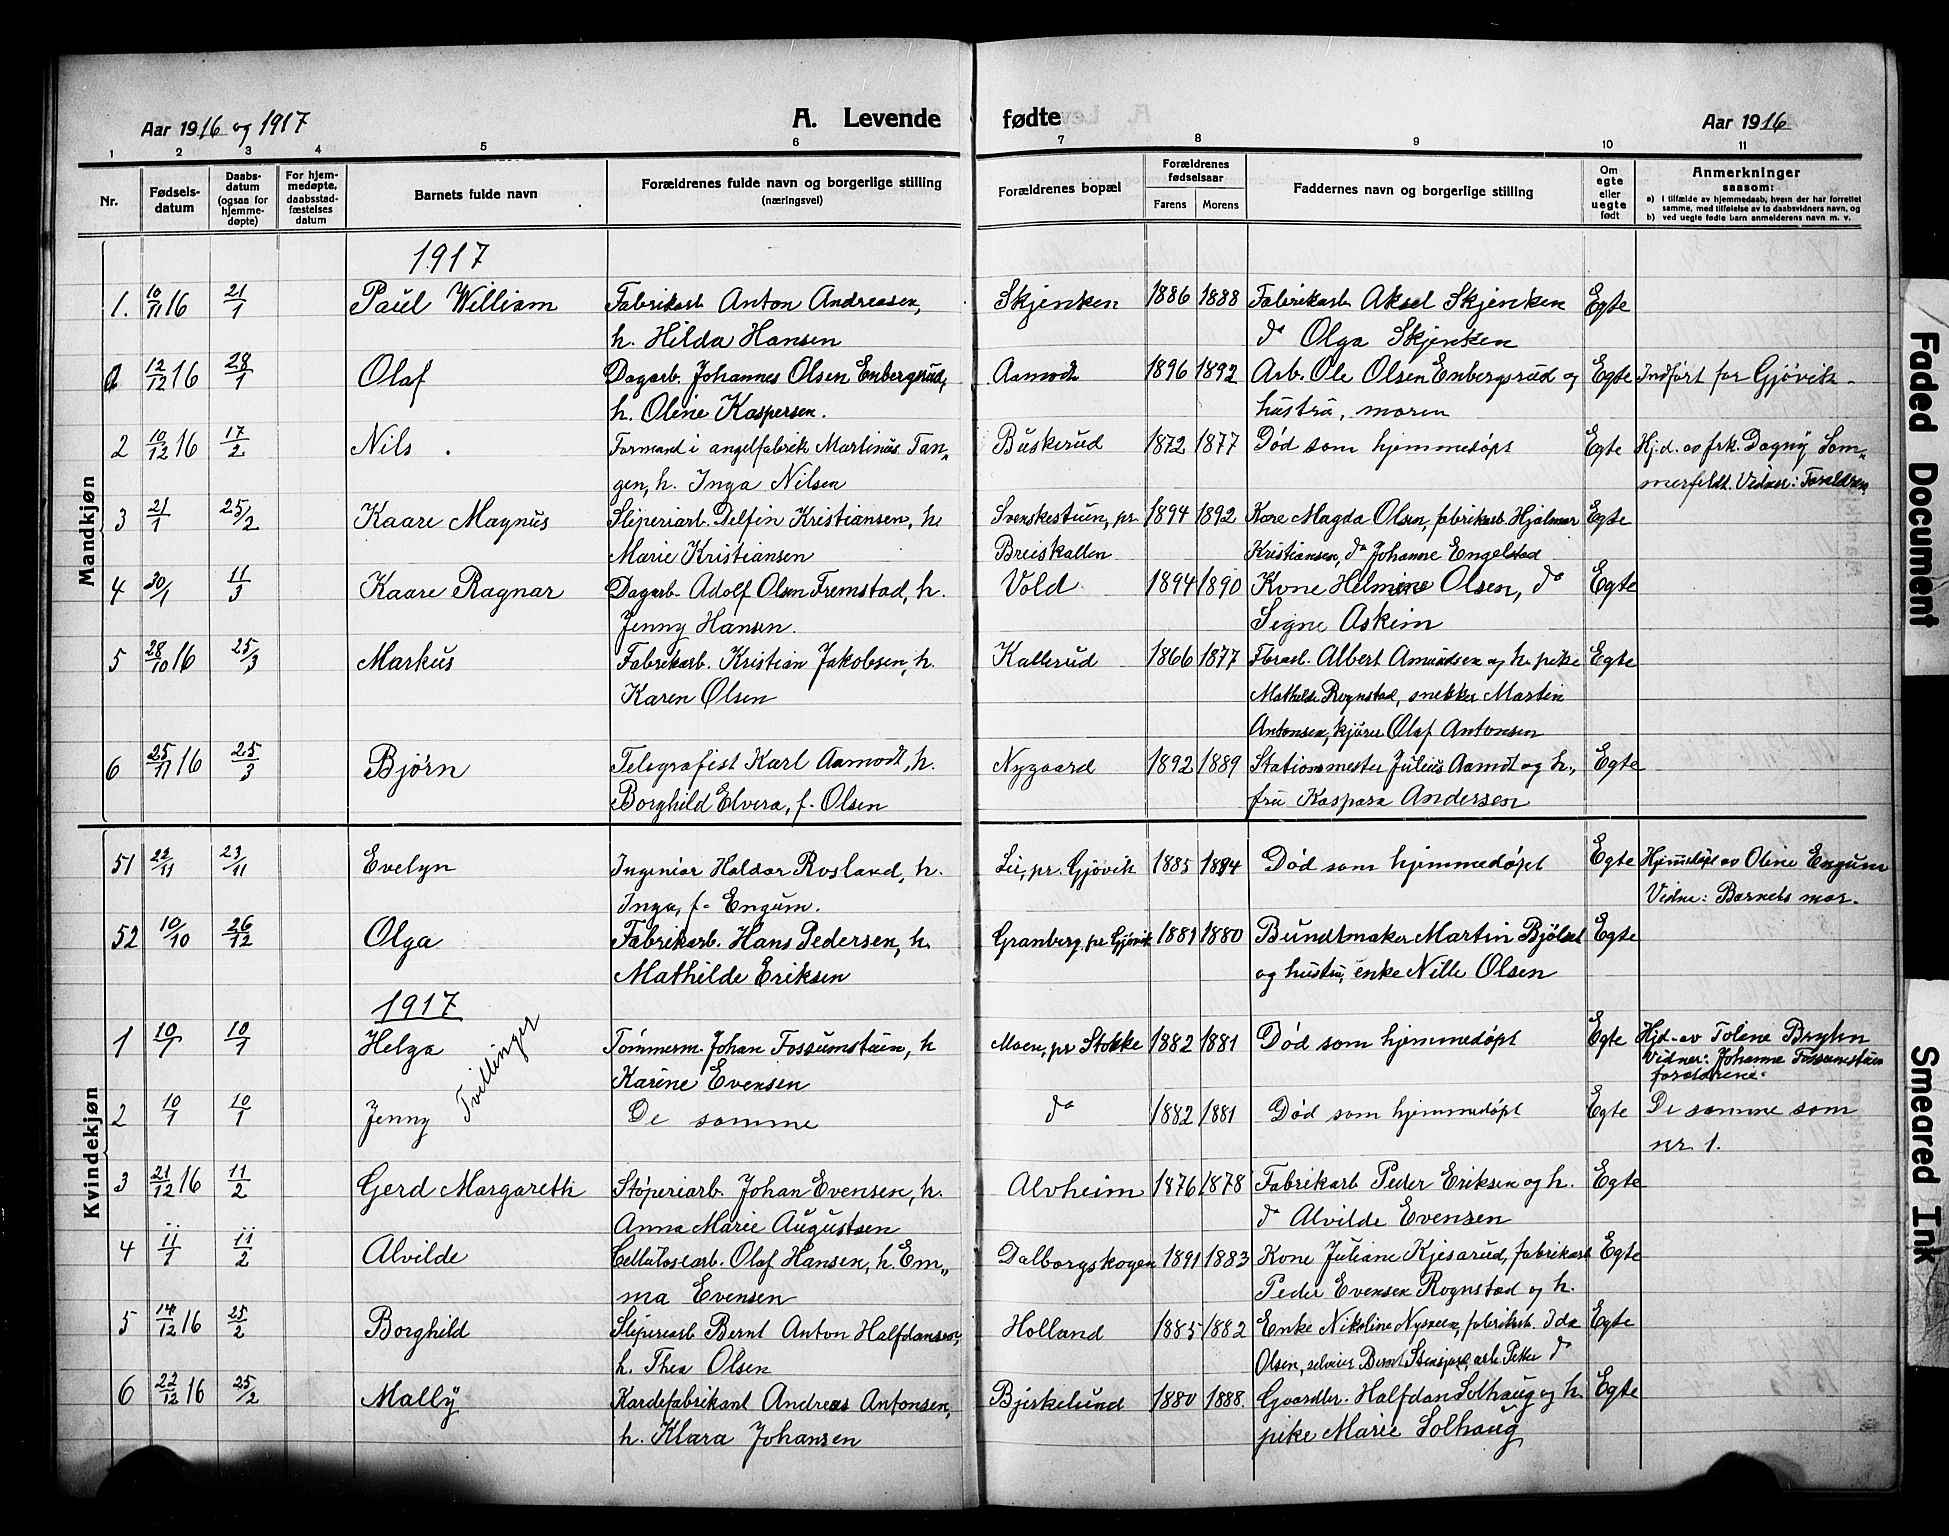 Aar 1916 og 1917
A. Levende fødte
Aar 1916
1 2 3 4 5 6 7 8 9 10 11
Nr.
Fødselsdatum
Daabsdatum (ogsaa for hjemmedøpte)
For hjemmedøpte, daabsstadfæstelses datum
Barnets fulde navn
Forældrenes fulde navn og borgerlige stilling (næringsvei)
Forældrenes bopæl
Forældrenes fødselsaar
Farens Morens
Faddernes navn og borgerlige stilling
Om egte eller uegte født
Anmerkninger
saasom:
a) i tilfælde av hjemmedaab, hvem der har forrettet samme, med tilføielse av to daabsvidners navn, og
b) ved uegte fødte barn anmelderens navn m. v.
Mandkjøn
1917
1. 10/11 16 21/1 Paul William Fabrikarb. Anton Andreasen, Skjenken 1886 1888 Fabrikarb. Aksel Skjenken Egte
h. Hilda Hansen do Olga Skjenken
12/12 16 28/1 Olaf Dagarb. Johannes Olsen Enbergsrud, Aamodt 1896 1892 Arb. Ole Olsen Enbergsrud og Egte Indført for Gjøvik.
h. Oline Kaspersen. hustru, moren
2 10/12 16 17/2 Nils . Formand i angelfabrik Martinus Tan- Buskerud 1872 1877 Død som hjemmedøpt Egte Hj.d. av frk. Dagny Som-
gen, h. Inga Nilsen merfeldt. Vidner: Forældren
3 21/1 25/2 Kaare Magnus Sliperiarb. Delfin Kristiansen, h Svenskestuen, pr 1894 1892 Kone Magda Olsen, fabrikarb. Hjalmar Egte
Marie Kristiansen Breiskallen Kristiansen, do Johanne Engelstad
4 30/1 11/3 Kaare Ragnar Dagarb. Adolf Olsen Fremstad, h. Vold 1894 1890 Kone Helmine Olsen, do Egte
Jenny Hansen. Signe Askim
5 28/10 16 25/3 Markus Fabrikarb. Kristian Jakobsen, h. Kallerud 1866 1877 Albert Amundsen og h. pike Egte
Karen Olsen Mathilde Rognstad, snekker Martin
Antonsen, kjører Olaf Antonsen
6 25/11 16 25/3 Bjørn Telegrafist Karl Aamodt, h. Nygaard 1892 1889 Stationsmester Julius Aamdt og h., Egte
Borghild Elvera, f. Olsen fru Kaspara Andersen
Kvindekjøn
51 22/11 23/11 Evelyn Ingeniør Haldor Rosland, h. Lie, pr. Gjøvik 1885 1894 Død som hjemmedøpt Egte Hjemmedøpt av Oline Engum
Inga, f. Engum. Vidne: Barnets mor.
52 10/10 26/12 Olga Fabrikarb. Hans Pedersen, h. Granberg, pr Gjøvik 1881 1880 Bundtmaker Martin Bjølset Egte
Mathilde Eriksen og hustru, enke Nille Olsen
1917
1 10/1 10/1 Helga Tvillinger Tømmerm. Johan Fossumstuen, h Moen, pr Stokke 1882 1881 Død som hjemmedøpt Egte Hjd. av Tolene Bryhn
Karine Evensen Vidner: Johanne Fossumstuen
forældrene.
2 10/1 10/1 Jenny De samme do 1882 1881 Død som hjemmedøpt Egte De samme som
nr 1.
3 21/12 16 11/2 Gerd Margareth Støperiarb. Johan Evensen, h. Alvheim 1876 1878 Fabrikarb Peder Eriksen og h. Egte
Anna Marie Augustsen do Alvilde Evensen
4 11/1 11/2 Alvilde Cellulosearb. Olaf Hansen, h. Em- Dalborgskogen 1891 1883 Kone Juliane Kjesarud, fabrikarb Egte
ma Evensen Peder Evensen Rognstad og h.
5 14/12 16 25/2 Borghild Sliperiarb Bernt Anton Halfdansen, Holland 1885 1882 Enke Nikoline Nyseen, fabrikarb. Ida Egte
h. Thea Olsen Olsen, selveier Bernt arb. Petter do
6 22/12 16 25/2 Mally Kardefabrikant Andreas Antonsen, Bjirkelund 1880 1888. Gaardbr. Halfdan Solhaug og h. Egte
h. Klara Johansen pike Marie Solhaug
Faded Document
Smeared Ink